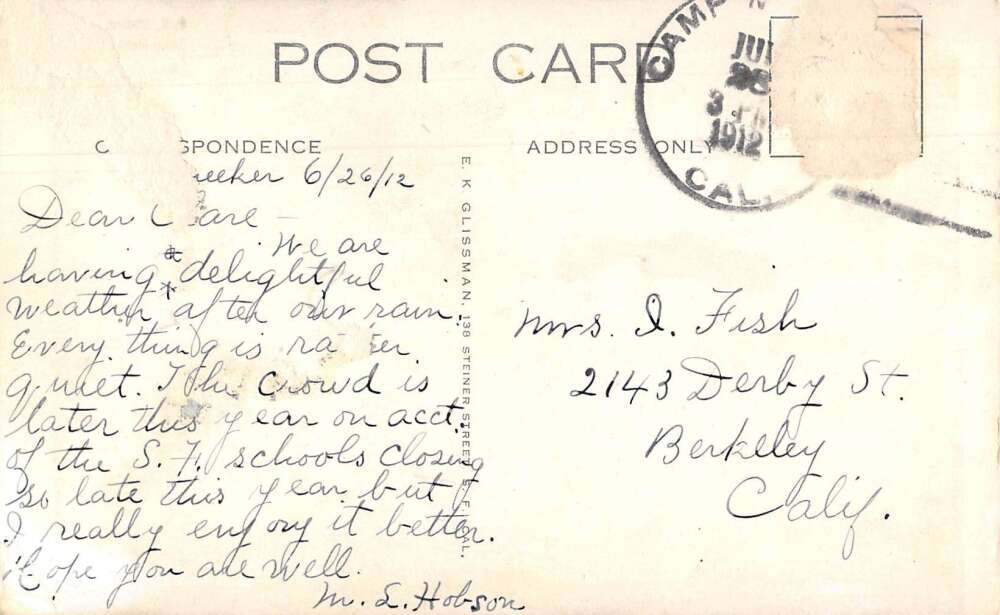 POST CARD
CAMP M
JU
26
3 PM
1912
CAL.
C SPONDENCE
ADDRESS ONLY
eeker 6/26/12
Dear C are -
We are
having delightful
weather after our rain.
Every thing is ra er
quiet. The crowd is
later this year on acct.
of the S. F. schools closing
so late this year but
I really enjoy it better.
Hope you are well.
M. L. Hobson
E. K GLISSMAN, 138 STEINER STREET, S. F. CAL.
Mrs. I. Fish
2143 Derby St.
Berkeley
Calif.